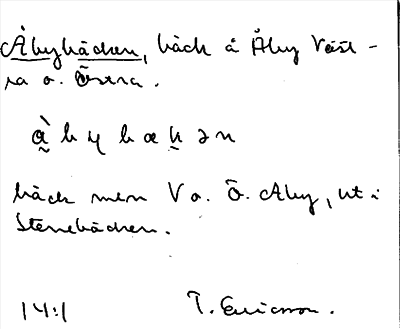 Åbybäcken, bäck å Åby Väst-
ra o. Östra.
bäck men V o. Ö. Åby, ut i
Stenebäcken.
14:1 T. Ericsson.